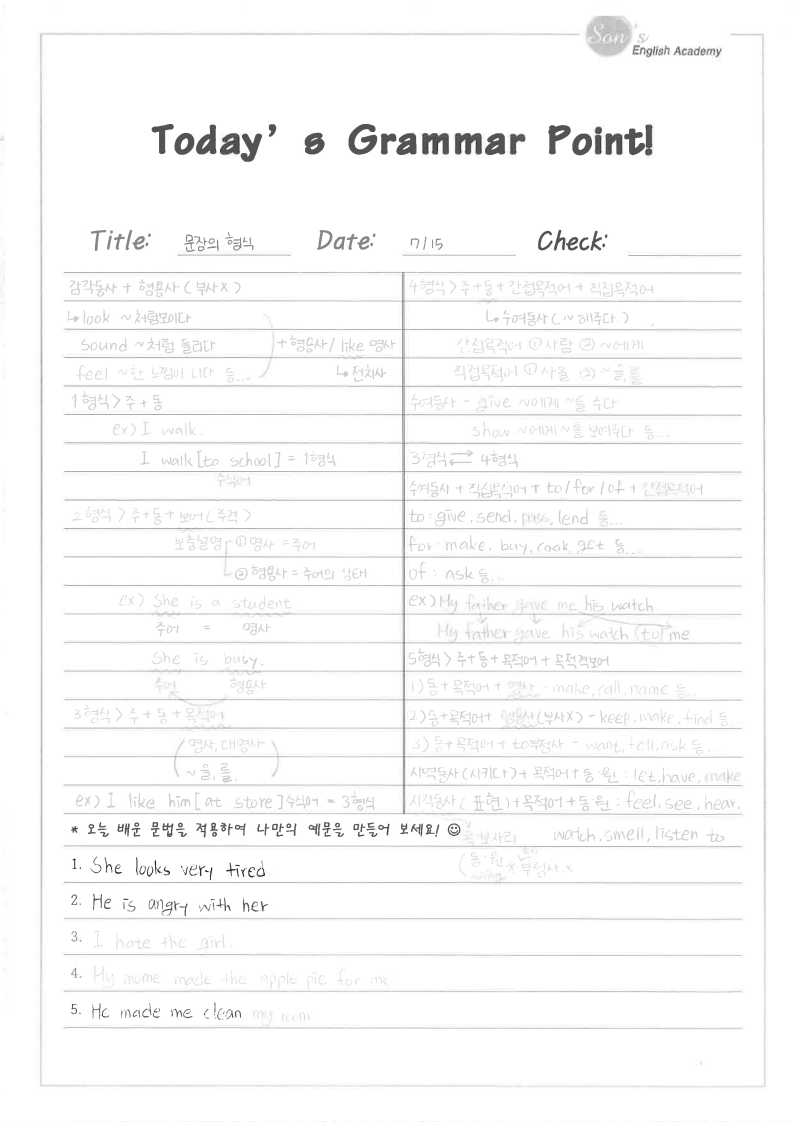 Son's
English Academy
Today's Grammar Point!
Title: 문장의 형식 Date: 7/15 Check:
감각동사 + 형용사 (부사X)
↳ look ~처럼보이다
sound ~처럼 들리다
feel ~한 느낌이 나다 등...
+형용사/ like 명사
↳ 전치사
1형식 > 주+동
ex) I walk.
I walk [to school] = 1형식
수식어
2형식 > 주+동+보어(주격)
보충설명 ① 명사 = 주어
② 형용사 = 주어의 상태
ex) She is a student
주어 = 명사
She is busy.
주어 형용사
3형식 > 주+동+목적어
(명사, 대명사
~을, 를.)
ex) I like him [at store] 수식어 = 3형식
4형식 > 주+동+간접목적어 + 직접목적어
↳ 수여동사 (~해주다.)
간접목적어 ① 사람 ② ~에게
직접목적어 ① 사물 ② ~을,를
수여동사 - give ~에게 ~를 주다
show ~에게 ~를 보여주다 등...
3형식 ⇄ 4형식
수여동사 + 직접목적어 + to/for/of + 간접목적어
to : give, send, pass, lend 등...
for : make, buy, cook, get 등...
of : ask 등...
ex) My father gave me his watch
My father gave his watch (to) me
5형식 > 주+동+목적어+목적격보어
1) 동+목적어+명사 - make, call, name 등.
2) 동+목적어+ 형용사(부사X) - keep, make, find 등..
3) 동+목적어 + to부정사 - want, tell, ask 등.
사역동사(시키다) + 목적어 + 동·원 : let, have, make
시각동사( 표현)+목적어+동·원 : feel, see, hear,
watch, smell, listen to
목·보자리
(동·원 ※to부정사 x
~ing
* 오늘 배운 문법을 적용하여 나만의 예문을 만들어 보세요! ☺
1. She looks very tired
2. He is angry with her
3. I hate the girl.
4. My mome made the apple pie for me.
5. He made me clean my room